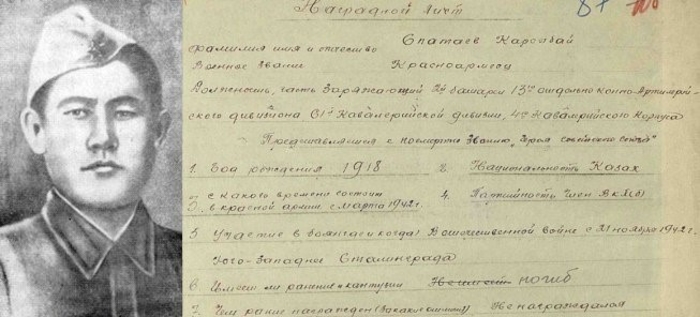 Наградной лист
87
Фамилия имя и отчество Спатаев Карсыбай
Военное звание Красноармеец
Должность, часть Заряжающий 2й батареи 13го отдельно Конно-Артиллерий-
ского дивизиона 81й Кавалерийской дивизии, 4го Кавалерийского Корпуса
Представляется к посмертн. званию "Героя Советского Союза"
1. Год рождения 1918 2. Национальность Казах
3. с какого времени состоит в красной армии с марта 1942 г. 4. Партийность Член ВКП(б)
5 Участие в боях (где и когда) В отечественной войне с 21 ноября 1942 г.
Юго-Западнее Сталинграда
6 Имеет ли ранение и контузии погиб
7 Чем ранее награжден Не награждался